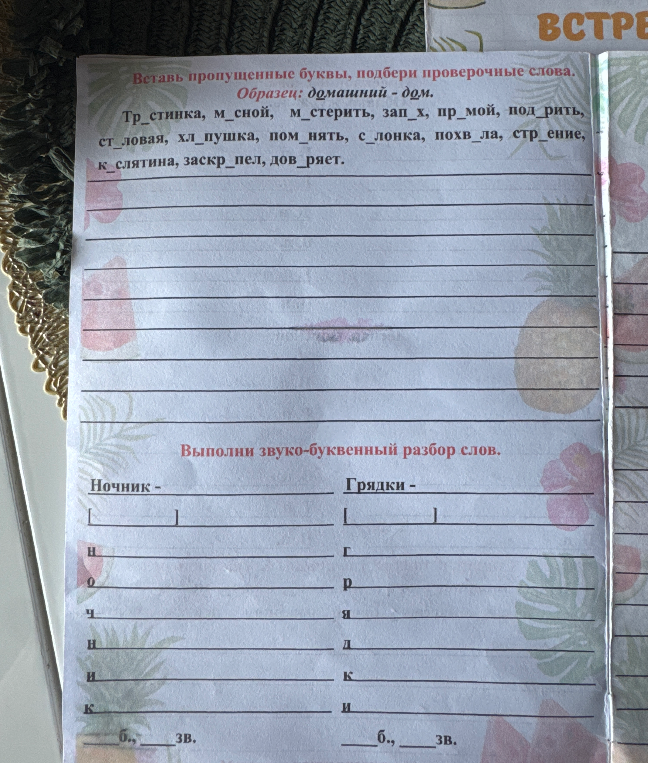 ВСТРЕ
Вставь пропущенные буквы, подбери проверочные слова.
Образец: домашний - дом.
Тр_стинка, м_сной, м_стерить, зап_х, пр_мой, под_рить,
ст_ловая, хл_пушка, пом_нять, с_лонка, похв_ла, стр_ение,
к_слятина, заскр_пел, дов_ряет.
Выполни звуко-буквенный разбор слов.
Ночник - Грядки -
[ ] [ ]
н г
о р
ч я
н д
и к
к и
____б., ____зв. ____б., ____зв.